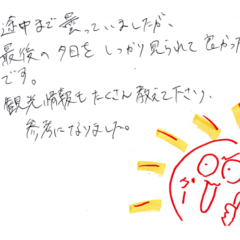 途中まで曇っていましたが、
最後の夕日をしっかり見られて良かった
です。
観光情報もたくさん教えて下さり、
参考になりました。